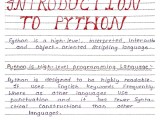 INTRODUCTION
TO PYTHON
Python is a high-level, interpreted, interactive
and object-oriented scripting language.
Python is High-level Programming Language:
Python is designed to be highly readable.
It uses English keywords frequently
where as other languages use
punctuation and it has fewer syntac-
tical constructions than other
languages.